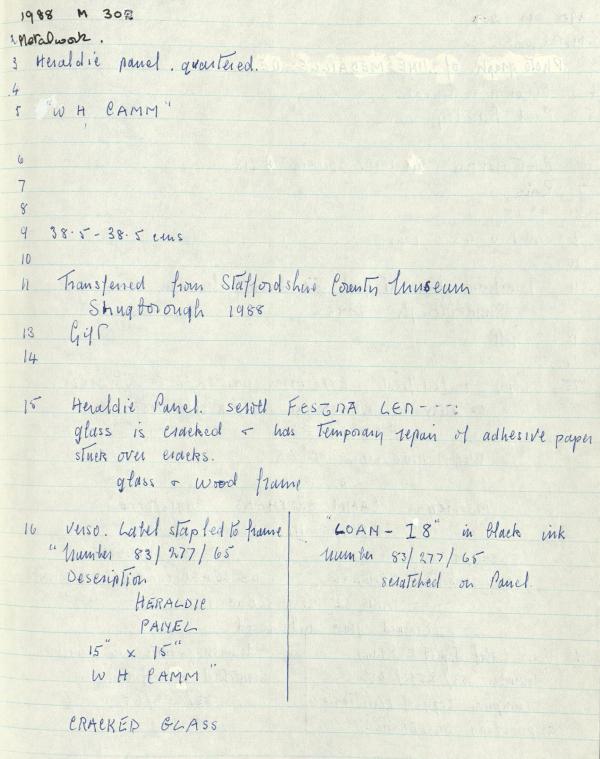 1988 M 302
2 Metalwork.
3 Heraldic panel. quartered.
4
5 "W H CAMM"
6
7
8
9 38.5-38.5 cms
10
11 Transferred from Staffordshire County Museum
Shugborough 1988
13 Gift
14
15 Heraldic Panel. scroll LEN----
glass is cracked & has temporary repair of adhesive paper
stuck over cracks.
glass & wood frame
16 verso. Label stapled to frame
"Number 83/277/65
Description
HERALDIC
PANEL
15" x 15"
W H CAMM"
CRACKED GLASS
"LOAN - I 8" in black ink
number 83/277/65
scratched on Panel.